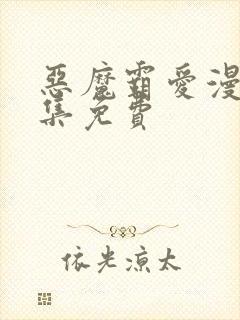 惡魔霸愛漫
集免費
依光涼太